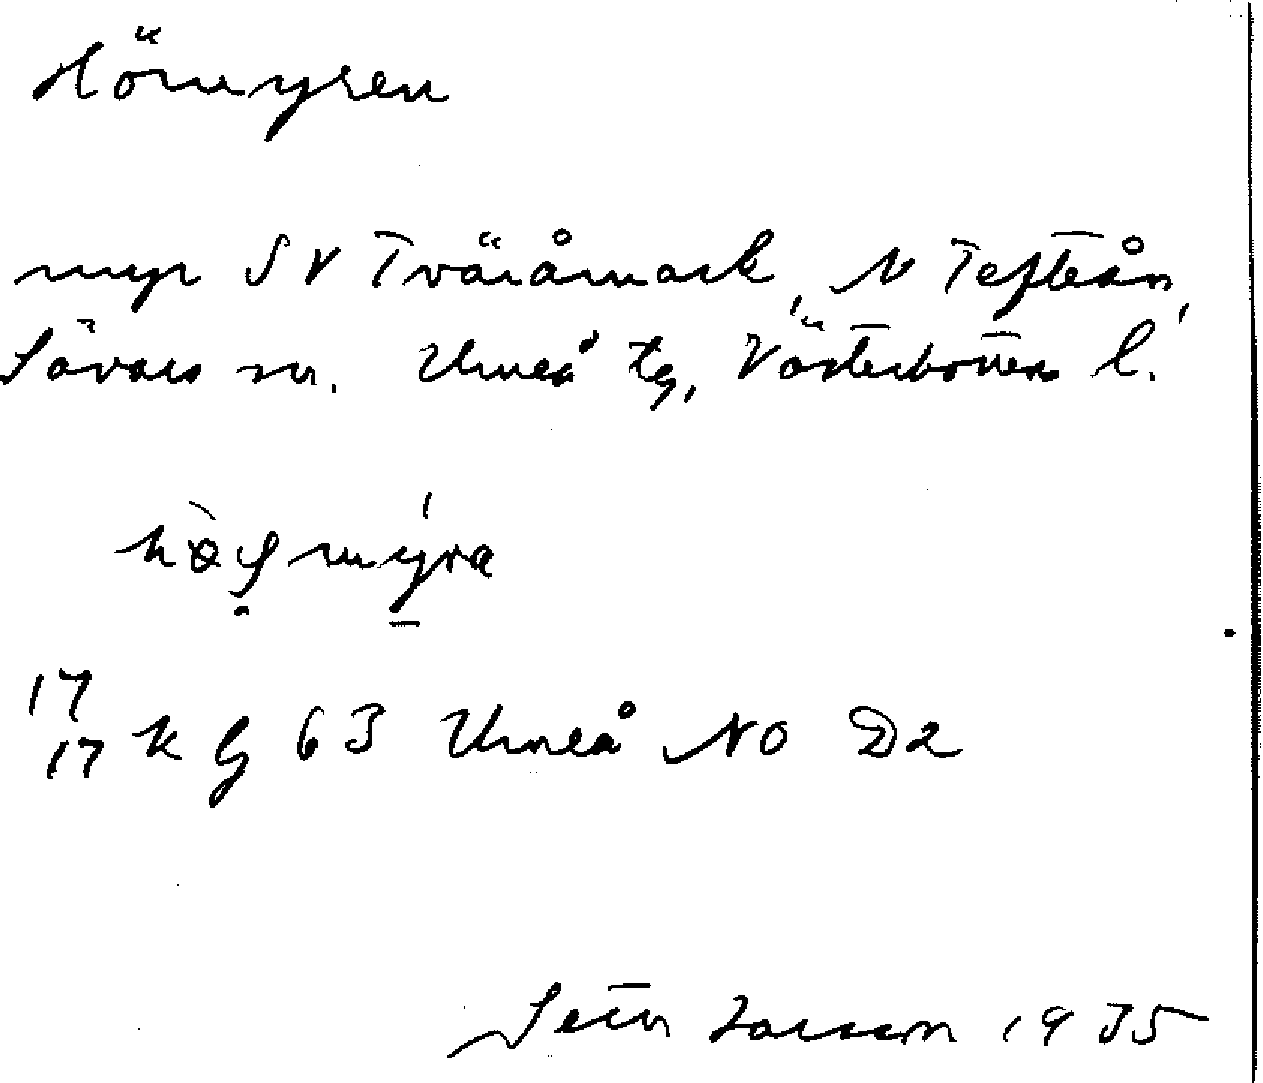 Hömyren
myr SV Tväråmark, N Tefteån,
Sävars sn. Umeå tg, Västerbottens l.
17
17 K g 63 Umeå NO D2
Seth Larsson 1935